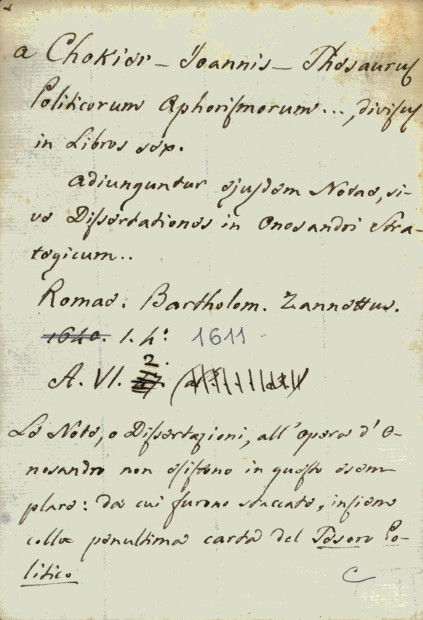 a Chokier - Joannis - Thesaurus
Politicorum Aphorismorum..., divisus
in Libros sex.
Adiunguntur ejusdem Notae, si-
ve Dissertationes in Onosandri Stra-
tegicum..
Romae. Bartholom. Zannettus.
1640. 1. 4º. 1611
A. VI. 2.
Le Note, o Dissertazioni, all'opera d'O-
nosandro non esistono in questo esem-
plare: da cui furono staccate, insieme
colla penultima carta del Tesoro Po-
litico.
C